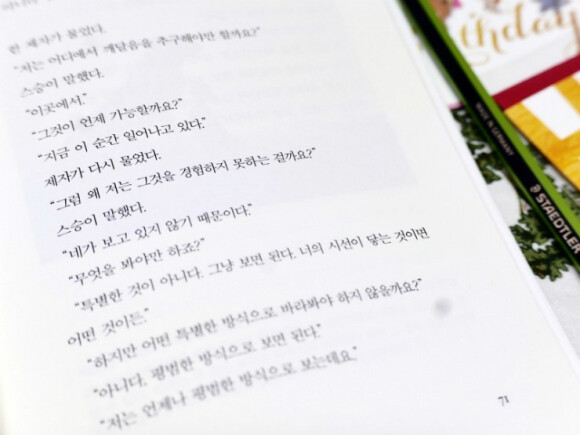 한 제자가 물었다.
"저는 어디에서 깨달음을 추구해야만 할까요?"
스승이 말했다.
"이곳에서."
"그것이 언제 가능할까요?"
"지금 이 순간 일어나고 있다."
제자가 다시 물었다.
"그럼 왜 저는 그것을 경험하지 못하는 걸까요?"
스승이 말했다.
"네가 보고 있지 않기 때문이다."
"무엇을 봐야만 하죠?"
"특별한 것이 아니다. 그냥 보면 된다. 너의 시선이 닿는 것이면
어떤 것이든."
"하지만 어떤 특별한 방식으로 바라봐야 하지 않을까요?"
"아니다. 평범한 방식으로 보면 된다."
"저는 언제나 평범한 방식으로 보는데요."
71
thday
MADE IN GERMANY
STAEDTLER